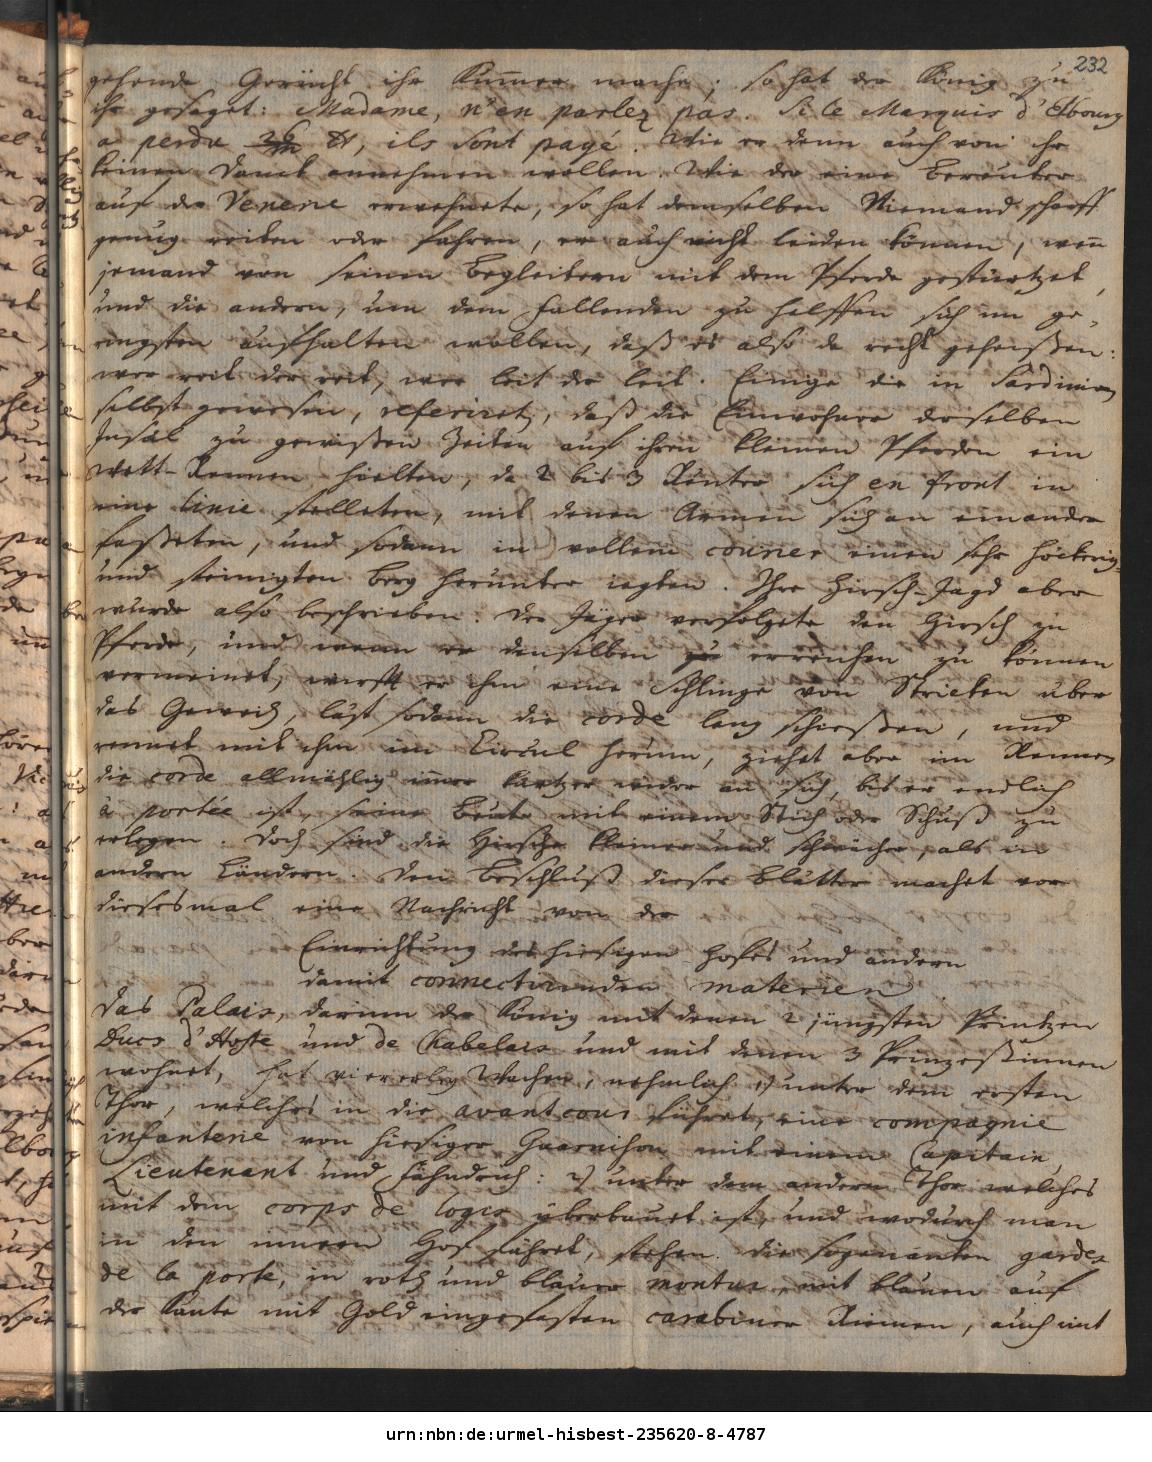 232
gehende Gerücht ihr Kummer mache; so hat der König zu
ihr gesaget: Madame, n'en parlez pas. Si le Marquis d'
a perdu ils sont payé. Wie er denn auch von ihr
keinen Danck annehmen wollen. Wie der eine Bereuter
auf der Venerie erwehnete, so hat demselben Niemand scharff
genug reiten oder fahren, er auch nicht leiden können, wen̄
jemand von seinen Begleitern mit dem Pferde gestürtzet,
und die andern, um dem fallenden zu helffen sich im ge-
ringsten aufhalten wollen, daß es also da recht geheißen:
wer reit der reit, wer leit der leit. Einige die in Sardinien
selbst gewesen, referiret, daß die Einwohner derselben
Insul zu gewißen Zeiten auf ihren kleinen Pferden ein
Wett-Rennen hielten, da 2 bis 3 Reuter sich en front in
eine Linie stelleten, mit denen Armen sich an einander
faßeten, und sodann in vollem courier einen sehr höckerig-
und steinigten Berg herunter jagten. Ihre Hirsch-Jagd aber
wurde also beschrieben. Der Jäger verfolgete den Hirsch zu
Pferde, und wenn er denselben zu erreichen zu können
vermeinet, wirfft er ihm eine Schlinge von Stricken über
das Geweih, läst sodann die corde lang schießen, und
rennet mit ihm im Circul herum, ziehet aber im Rennen
die corde allmählig immer kürtzer wider an sich, bis er endlich
à portée ist, seine Beute mit einem Stich oder Schuß zu
erlegen. Doch sind die Hirsche kleiner und schwächer, als in
andern Ländern. Den Beschluß dieser Blätter machet vor
diesesmal eine Nachricht von der
Einrichtung des hiesigen Hofes und andern
damit connectirenden materien.
Das Palais, darinn der König mit denen 2 jüngsten Printzen
Ducs d'Aoste und de Chabelais und mit denen 3 Prinzeßinnen
wohnet, hat viererley Wachen, nehmlich 1) unter dem ersten
Thor, welches in die avantcour führet, eine compagnie
infanterie von hiesiger Guarnison mit einem Capitain,
Lieutenant und Fähndrich: 2) unter dem andern Thor welches
mit dem corps de logis überbauet ist, und wodurch man
in den innern Hof fähret, stehen die sogenanten gardes
de la porte, in roth und blauer montur, mit blauen auf
der Kante mit Gold eingefasten carabiner Riemen, auch mit
urn:nbn:de:urmel-hisbest-235620-8-4787